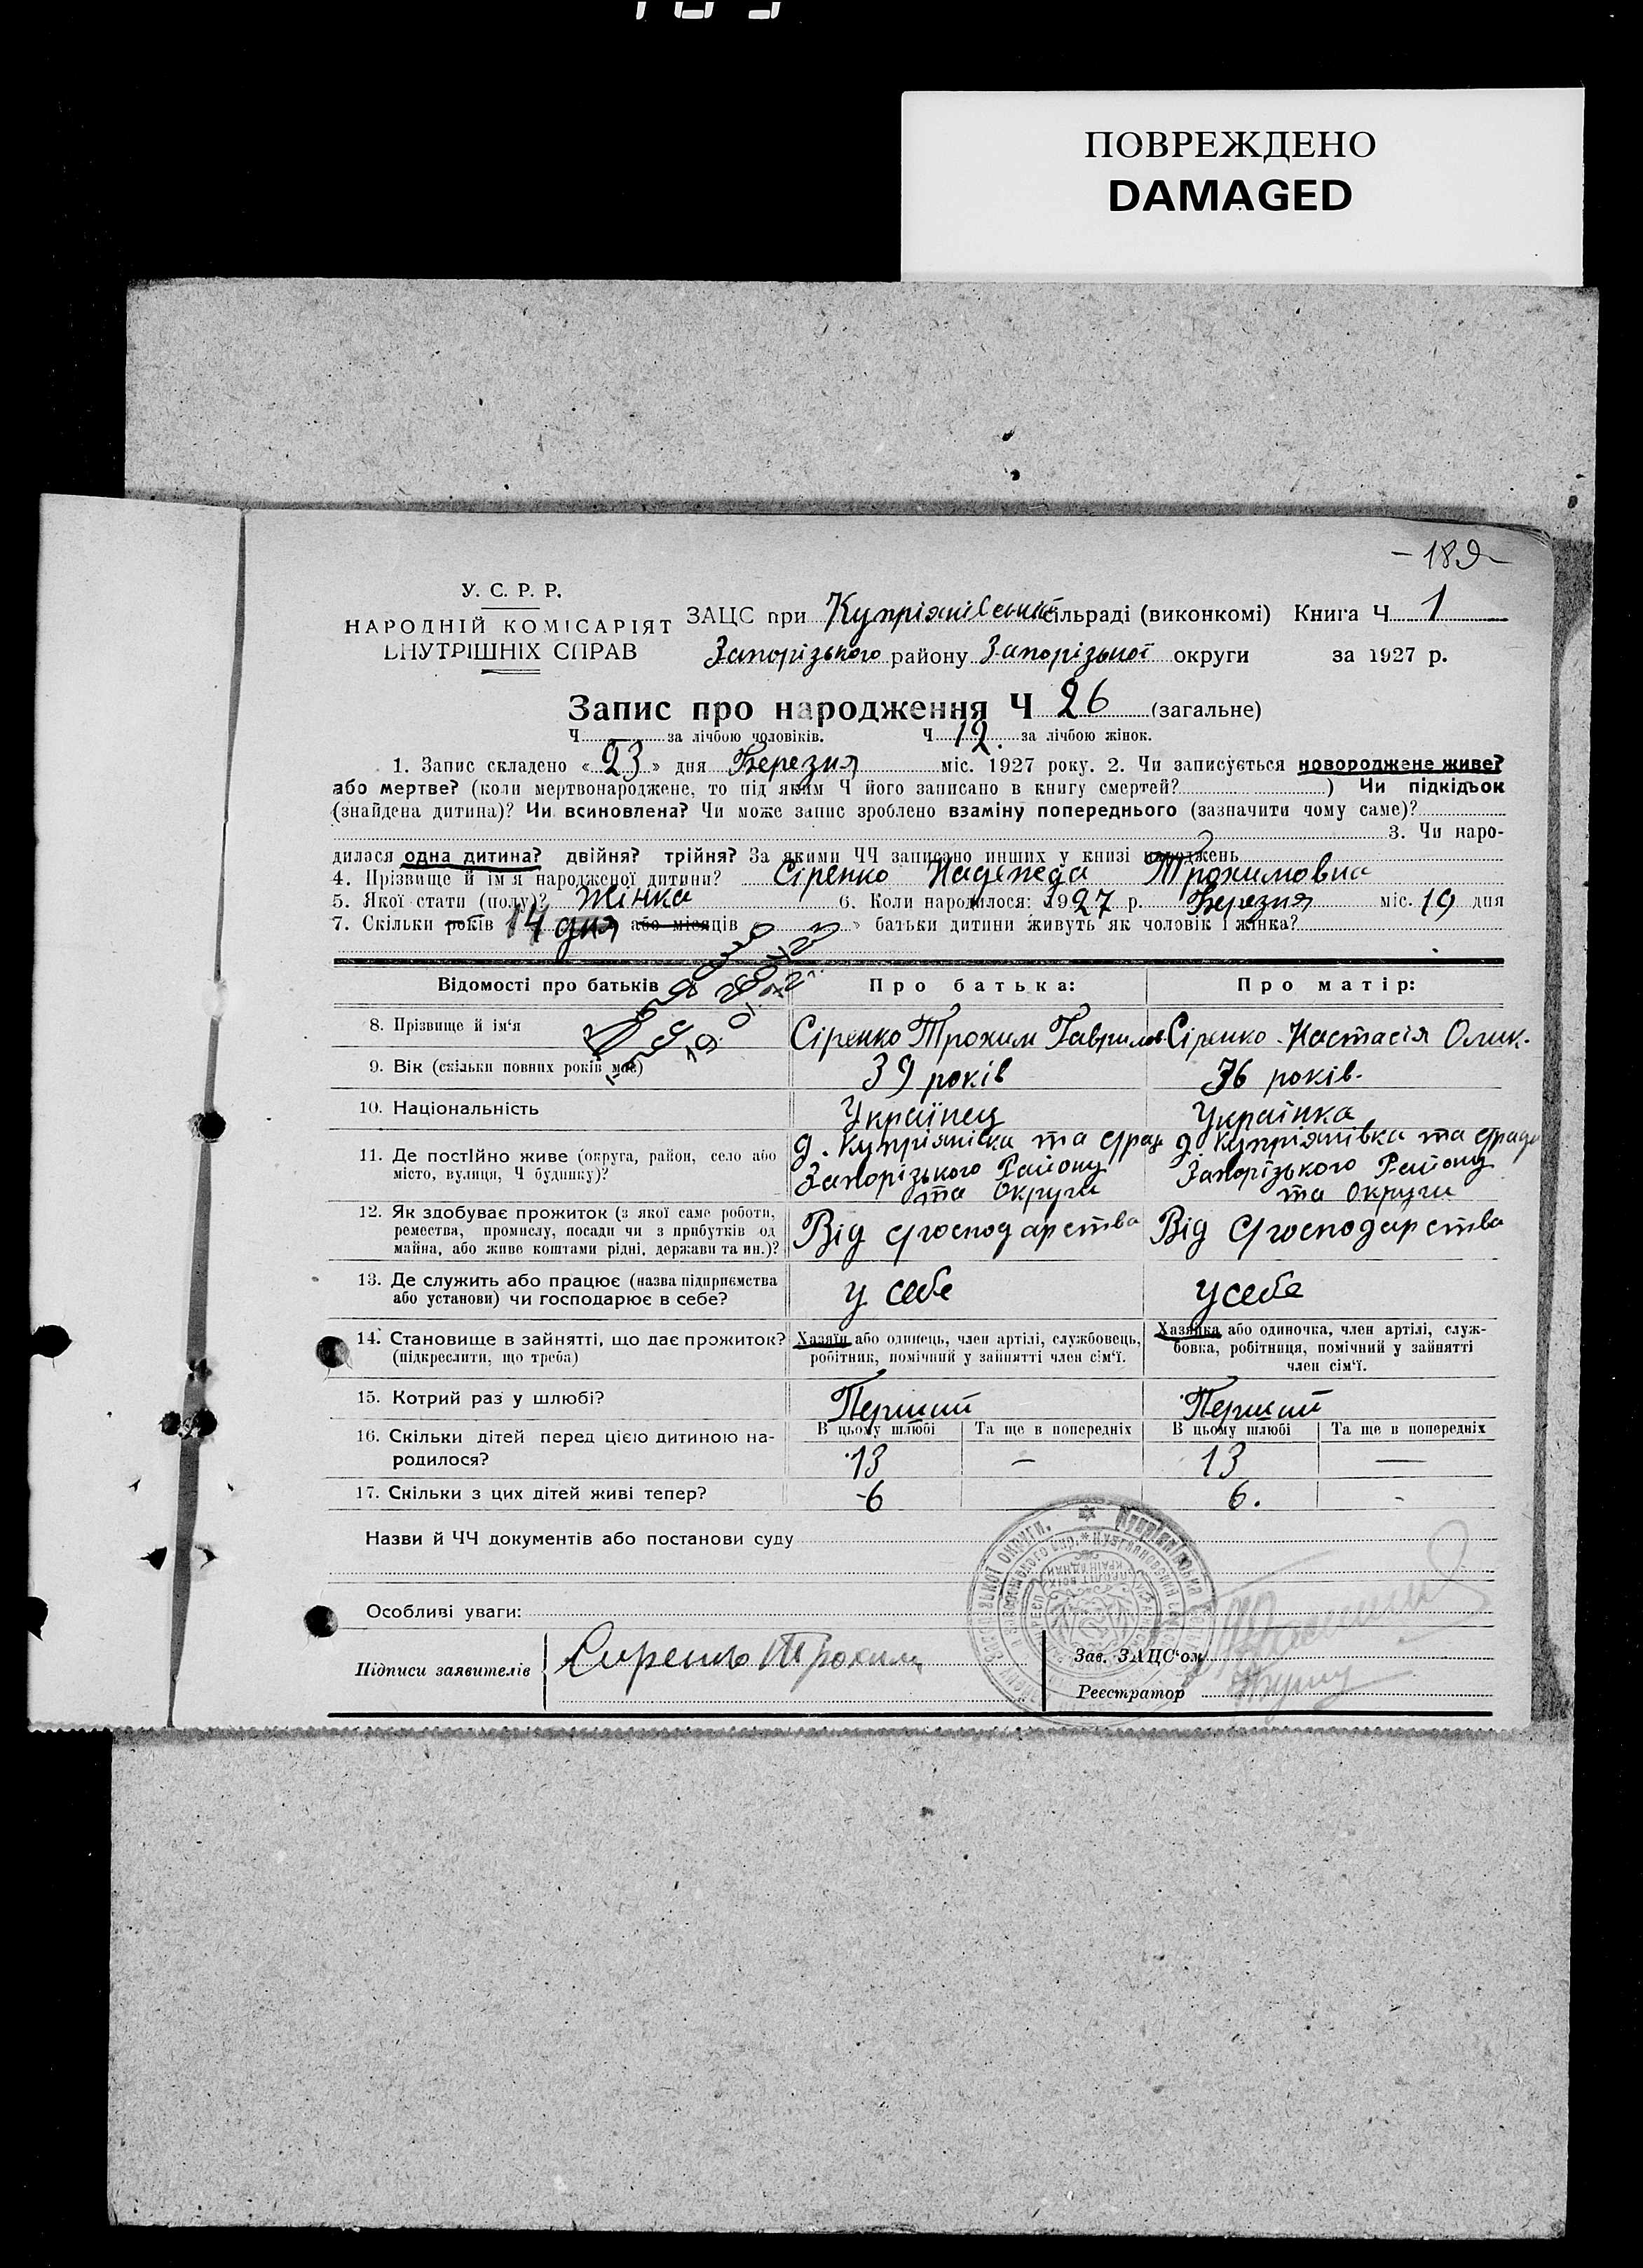 ПОВРЕЖДЕНО
DAMAGED
- 189 -
У. С. Р. Р.
НАРОДНІЙ КОМІСАРІЯТ
ВНУТРІШНІХ СПРАВ
ЗАЦС при Купріянівській сільраді (виконкомі) Книга Ч 1
Запорізького району Запорізької округи за 1927 р.
Запис про народження Ч 26 (загальне)
Ч за лічбою чоловіків. Ч 12. за лічбою жінок.
1. Запис складено « 23 » дня Березня міс. 1927 року. 2. Чи записується новороджене живе?
або мертве? (коли мертвонароджене, то під яким Ч його записано в книгу смертей? ) Чи підкідьок
(знайдена дитина)? Чи всиновлена? Чи може запис зроблено взаміну попереднього (зазначити чому саме)?
3. Чи наро-
дилася одна дитина? двійня? трійня? За якими ЧЧ записано инших у книзі народжень
4. Прізвище й ім'я народженої дитини? Сіренко Надежда Трохимовна
5. Якої стати (полу)? Жінка 6. Коли народилося: 1927 р. Березня міс. 19 дня
7. Скільки років 14 дня або місяців » батьки дитини живуть як чоловік і жінка?
Відомості про батьків Про батька: Про матір:
8. Прізвище й ім'я Сіренко Трохим Гаврилов. Сіренко Настасія Олик.
9. Вік (скільки повних років має) 39 років 36 років.
10. Національність Українец Українка
11. Де постійно живе (округа, район, село або місто, вулиця, Ч будинку)?
Запорізького Району Запорізького Району
та Округи та Округи
12. Як здобуває прожиток (з якої саме роботи,
ремества, промислу, посади чи з прибутків од
майна, або живе коштами рідні, держави та ин.)?
Від с/господарства Від с/господарства
13. Де служить або працює (назва підприємства
або установи) чи господарює в себе?
у себе у себе
14. Становище в зайнятті, що дає прожиток?
(підкреслити, що треба)
Хазяїн або одинець, член артілі, службовець,
робітник, помічний у зайнятті член сім'ї.
Хазяйка або одиночка, член артілі, служ-
бовка, робітниця, помічний у зайнятті
член сім'ї.
15. Котрий раз у шлюбі? Перший Перший
16. Скільки дітей перед цією дитиною на-
родилося?
В цьому шлюбі Та ще в попередніх В цьому шлюбі Та ще в попередніх
13 — 13 —
17. Скільки з цих дітей живі тепер? 6 6. -
Назви й ЧЧ документів або постанови суду
Особливі уваги:
Підписи заявителів Сиренко Трохим
Зав. ЗАЦС'ом
Реєстратор